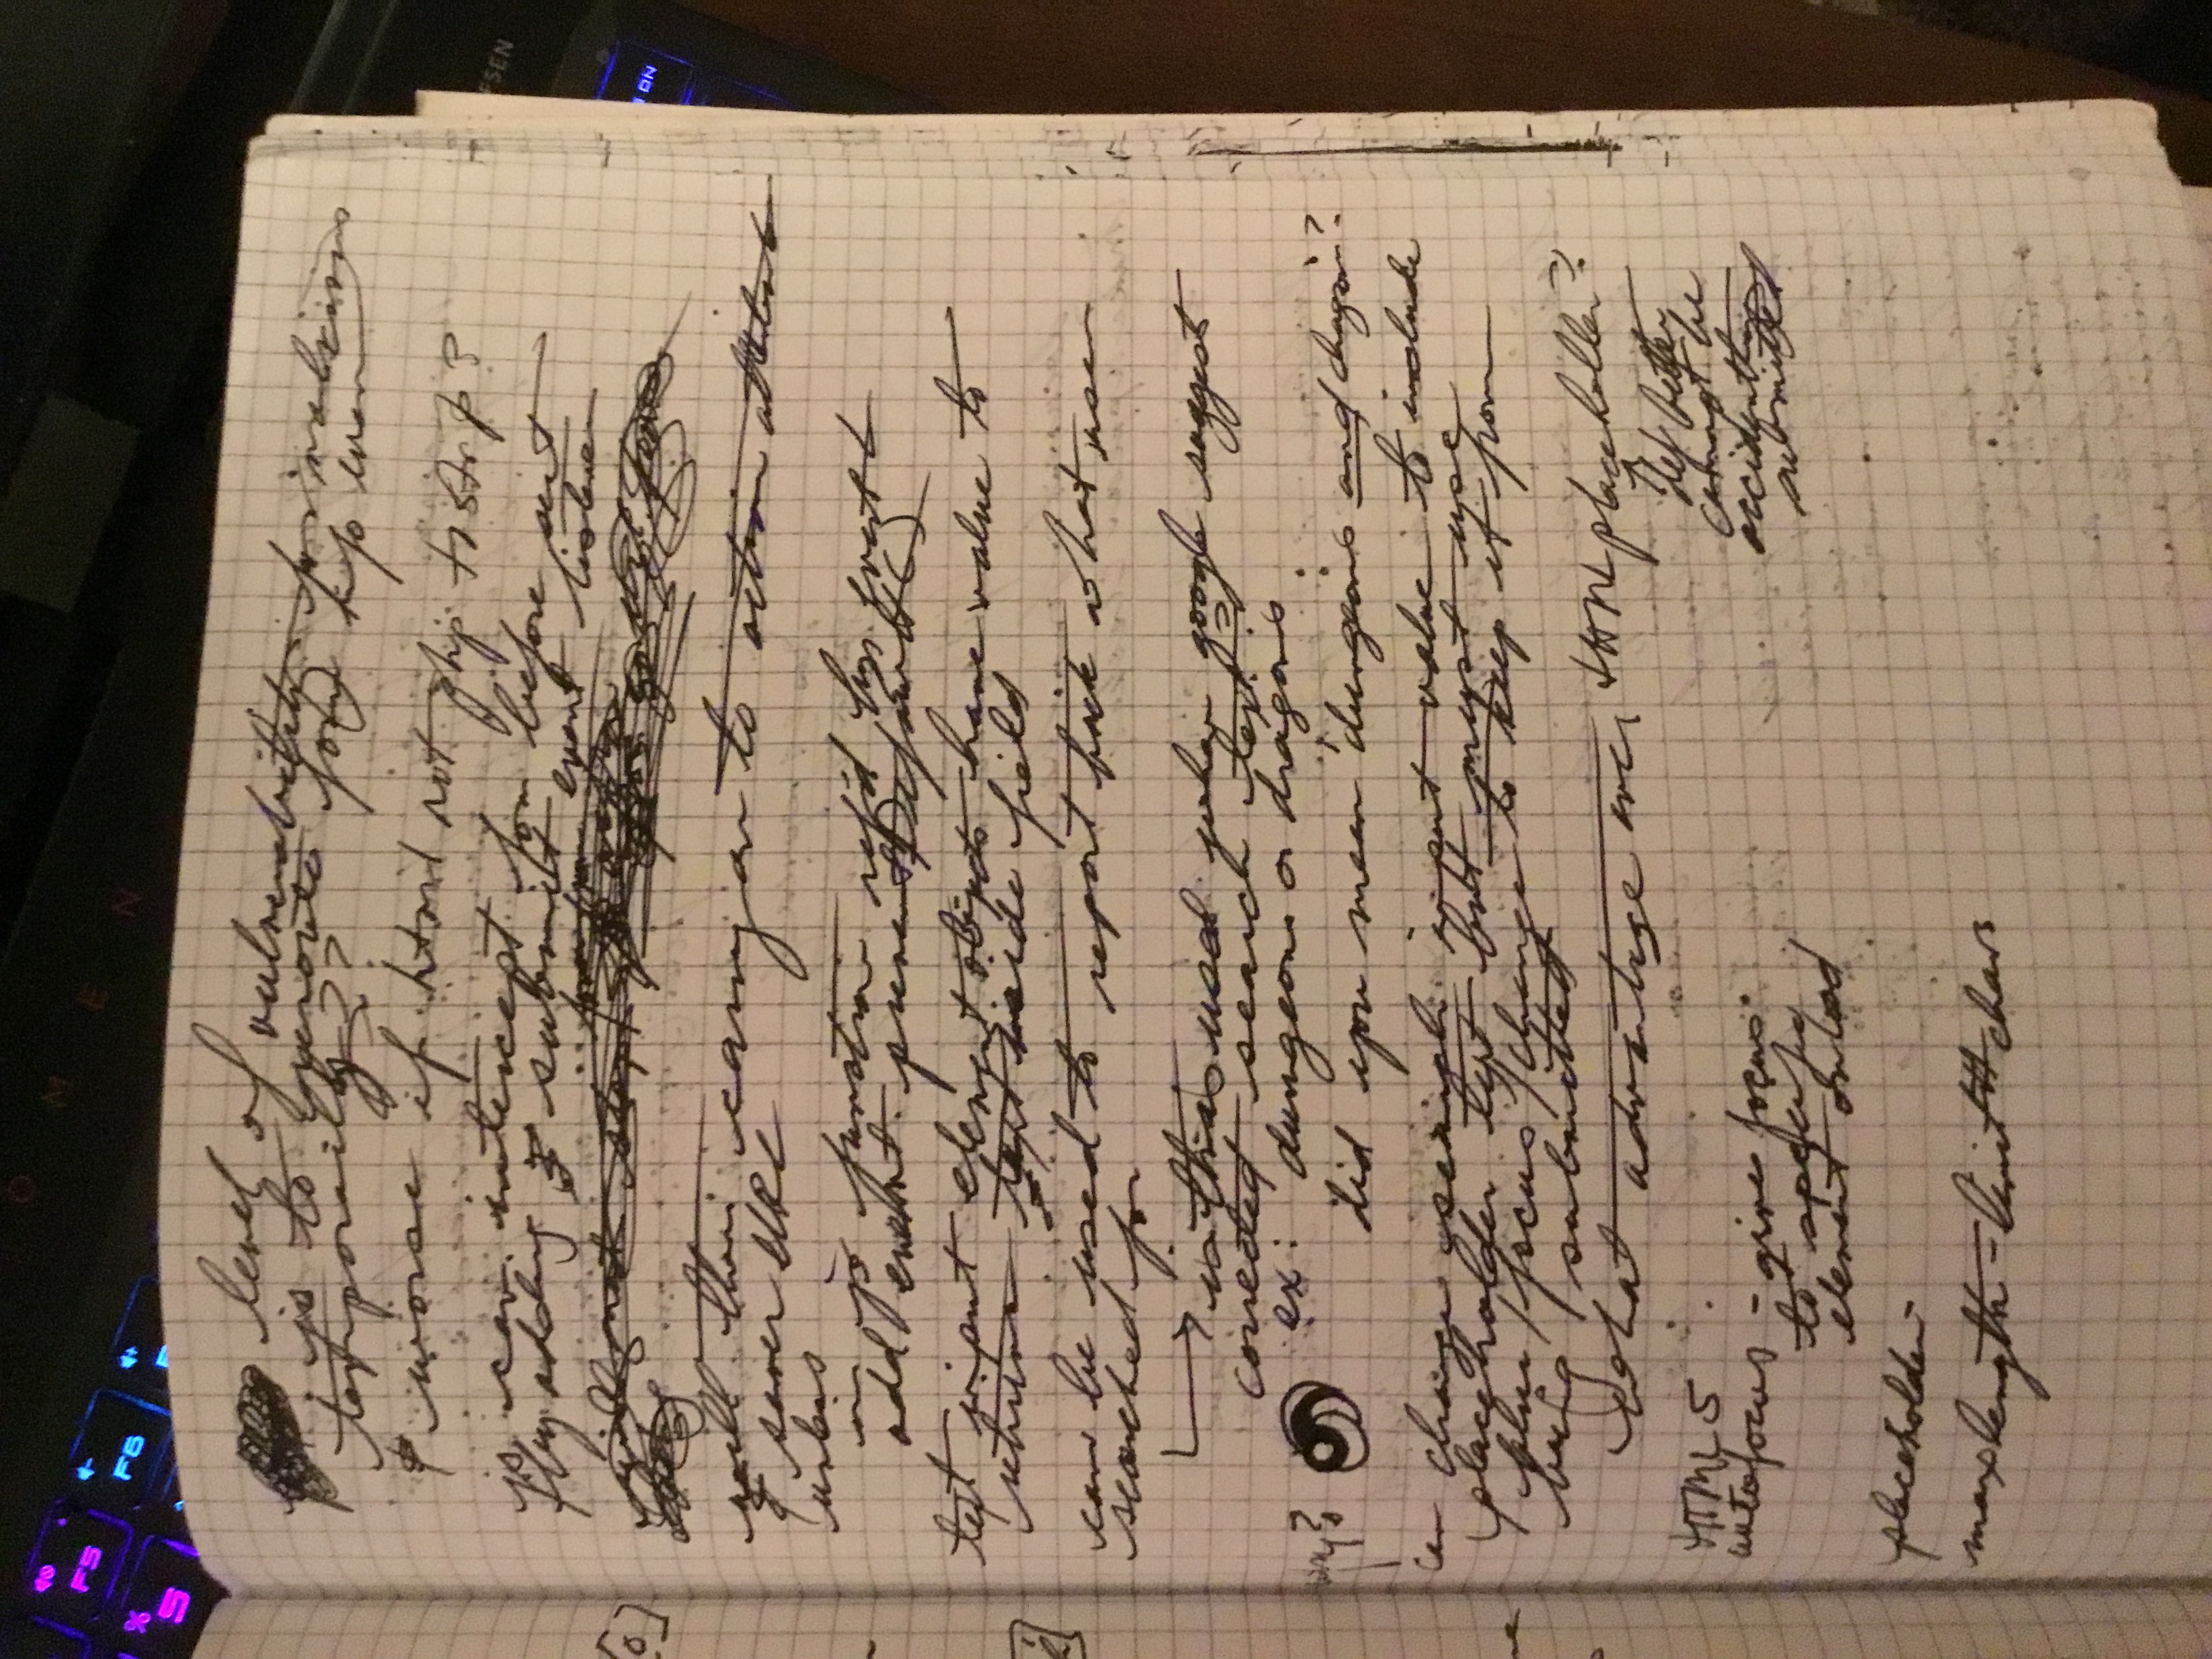 F5
F6
%
5
O M E N
level of vulnerability for malicious
js to reroute form info even
temporarily??
& worse if html not php to strip?
js can intercept form before sent
by adding submit event listener
will then carry on to action attribute
& server URL
unless
in js function ref'd by event
add event.preventDefault()
text input element objects have value to
retrieve text inside field
can be used to report back what user
searched for
is this used when google suggest
corrected search text?
ex: dungeons or dragons
did you mean "dungeons and dragons"?
can change search input value to include
placeholder text but must use
blur/focus/change to keep it from
being submitted
what advantage over HTML placeholder?
def better
cannot be
accidently
submitted
HTML 5
autofocus - gives focus
to specific
element on load
placeholder -
maxlength - limit # chars